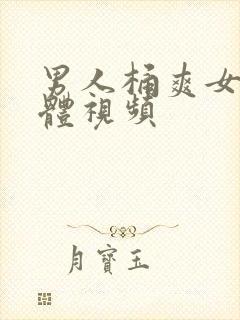 男人桶爽女
體視頻
月寶玉